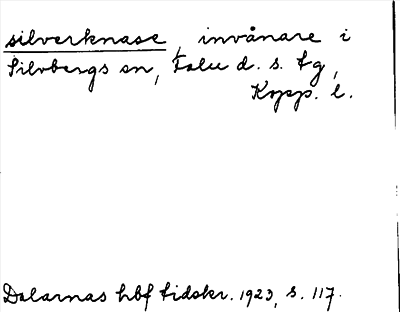 silverknase, invånare i
Silvbergs sn, Falu d. s. tg,
Kopp. l.
Dalarnas hbf tidskr. 1923, s. 117.